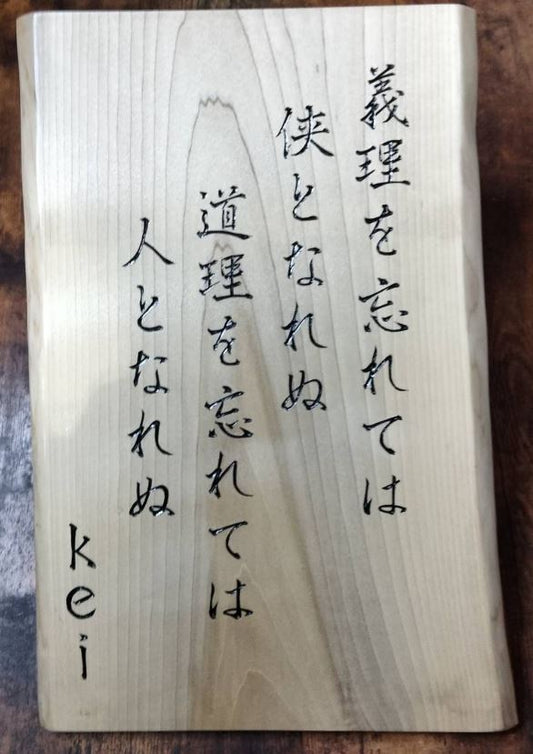 義理を忘れては
侠となれぬ
道理を忘れては
人となれぬ
kei